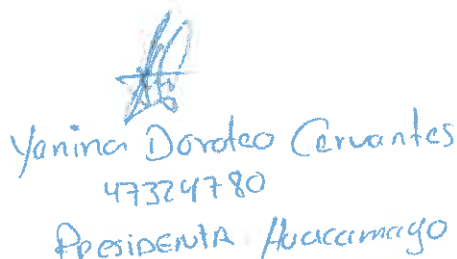 Yanina Doroteo Cervantes
47324780
PRESIDENTA Huacamayo